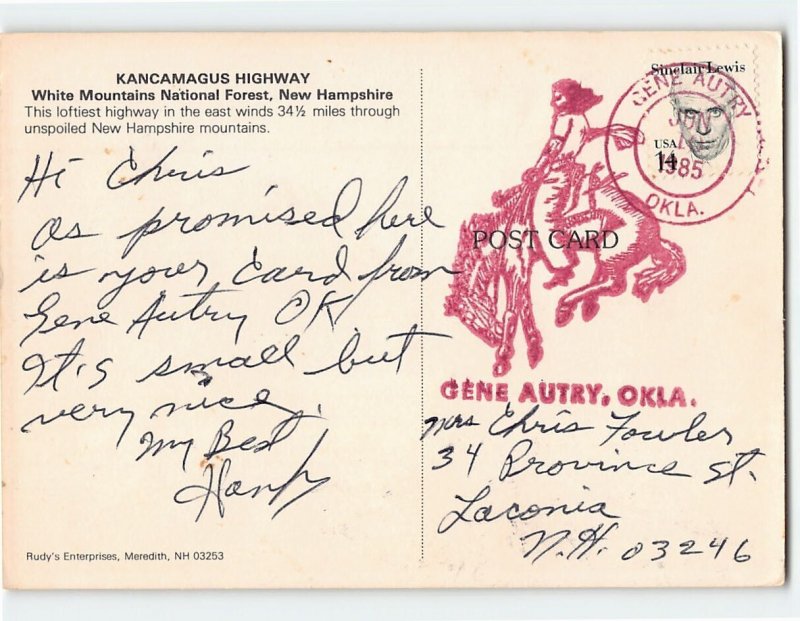 KANCAMAGUS HIGHWAY
White Mountains National Forest, New Hampshire
This loftiest highway in the east winds 34½ miles through
unspoiled New Hampshire mountains.
Hi Chris
as promised here
is your Card from
Gene Autry OK
It's small but
very nice.
My Best
Rudy's Enterprises, Meredith, NH 03253
Sinclair Lewis
USA
14
GENE AUTRY
JUN
1985
OKLA.
POST CARD
GENE AUTRY, OKLA.
Mrs Chris Fowler
34 Province St.
Laconia
N.H. 03246